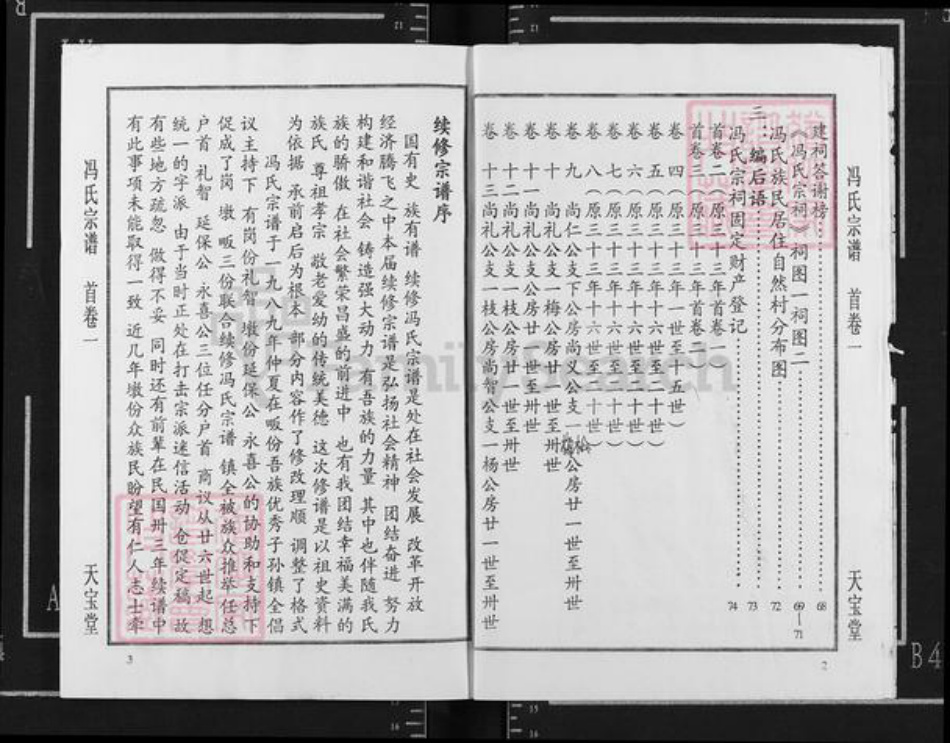 冯氏宗谱 首卷一 天宝堂
建祠答谢榜 68
《冯氏宗祠》祠图一祠图二 69—71
冯氏族民居住自然村分布图 72
二、编后语 73
冯氏宗祠固定财产登记 74
首卷二(原三十三年首卷一)
首卷三(原三十三年首卷二)
卷 四(原三十三年一世至十五世)
卷 五(原三十三年十六世至二十世)
卷 六(原三十三年十六世至二十世)
卷 七(原三十三年十六世至二十世)
卷 八(原三十三年十六世至二十世)
卷 九 尚仁公支下公房尚义公支一 公房廿一世至卅世
卷 十 尚礼公支一梅公房廿一世至卅世
卷 十一 尚礼公支一 公房廿一世至卅世
卷 十二 尚礼公支一枝公房廿一世至卅世
卷 十三 尚礼公支一枝公房尚智公支一杨公房廿一世至卅世
2
续修宗谱序
国有史 族有谱 续修冯氏宗谱是处在社会发展 改革开放
经济腾飞之中本届续修宗谱是弘扬社会精神 团结奋进 努力
构建和谐社会 铸造强大动力 有吾族的力量 其中也伴随我氏
族的骄傲 在社会繁荣昌盛的前进中 也有我团结幸福美满的
族氏 尊祖孝宗 敬老爱幼的传统美德 这次修谱是以祖史资料
为依据 承前启后为根本 部分内容作了修改理顺 调整了格式
冯氏宗谱于一九八九年仲夏在畈份吾族优秀子孙镇全倡
议主持下 有岗份礼智 墩份延保公 永喜公的协助和支持下
促成了岗 墩 畈三份联合续修冯氏宗谱 镇全被族众推举任总
户首 礼智 延保公 永喜公三位任分户首 商议从廿六世起 想
统一的字派 由于当时正处在打击宗派迷信活动 仓促定稿 故
有些地方疏忽 做得不妥 同时还有前辈在民国卅三年续谱中
有此事项未能取得一致 近几年墩份众族民盼望有仁人志士牵
冯氏宗谱 首卷一 天宝堂
3
FamilySearch
A
B4